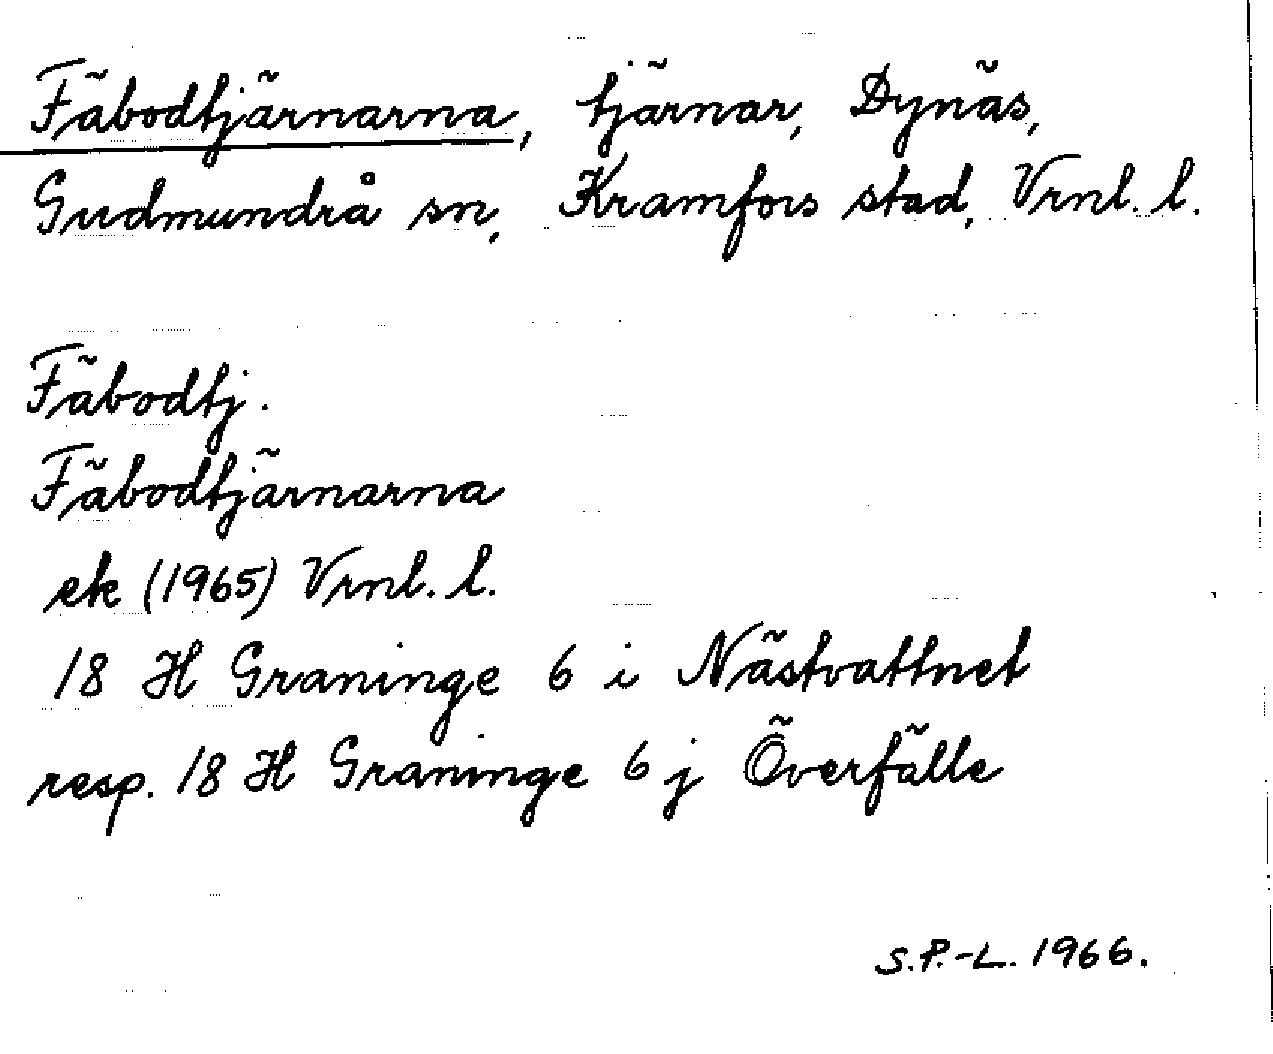 Fäbodtjärnarna, tjärnar, Dynäs,
Gudmundrå sn, Kramfors stad, Vrnl. l.
Fäbodtj.
Fäbodtjärnarna
ek (1965) Vrnl. l.
18 H Graninge 6 i Nästvattnet
resp. 18 H Graninge 6 j Överfälle
S.P.-L. 1966.